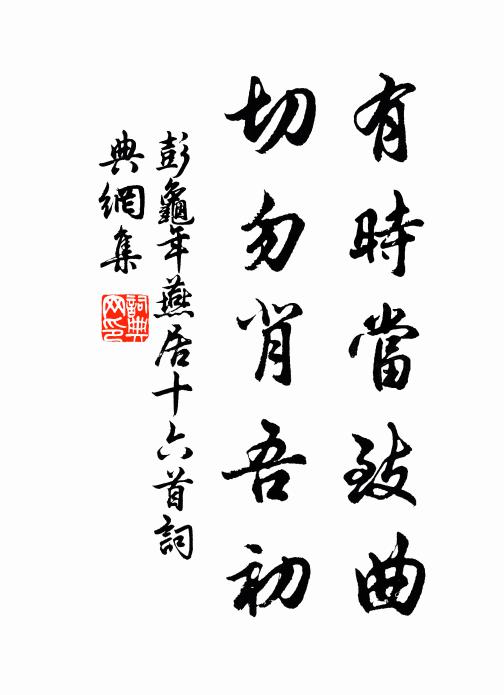 有時當致曲
切勿背吾初
彭龜年燕居十六首詞
典網集
詞典
网印